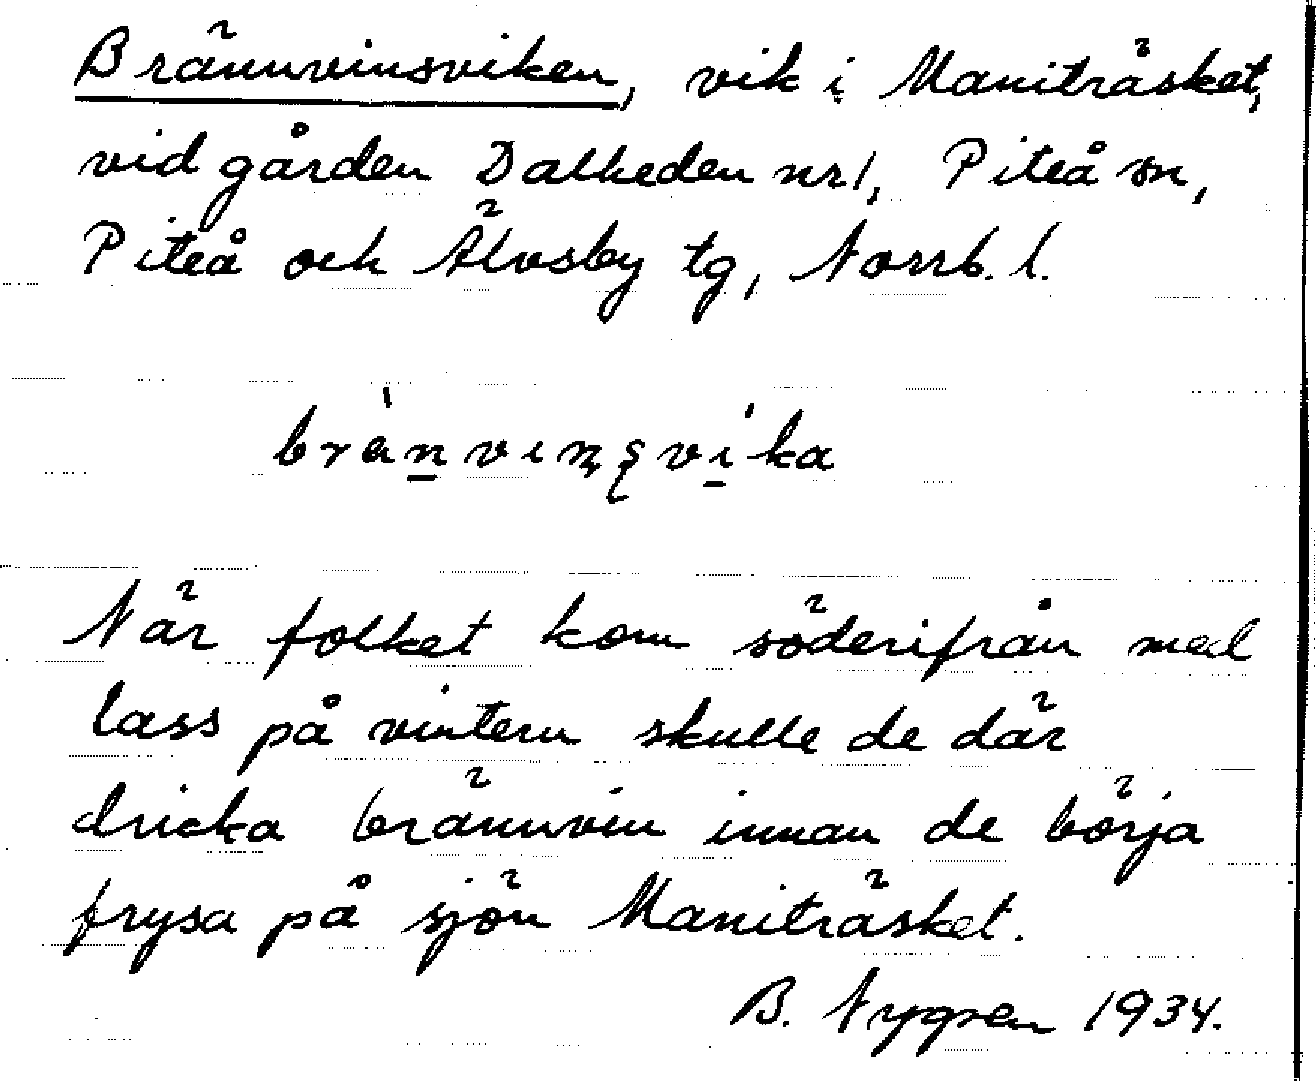 Brännvinsviken, vik i Maniträsket,
vid gården Dalheden nr1, Piteå sn,
Piteå och Älvsby tg, Norrb. l.
brànvinsvika
När folket kom söderifrån med
lass på vintern skulle de där
dricka brännvin innan de börja
frysa på sjön Maniträsket.
B. Nygren 1934.